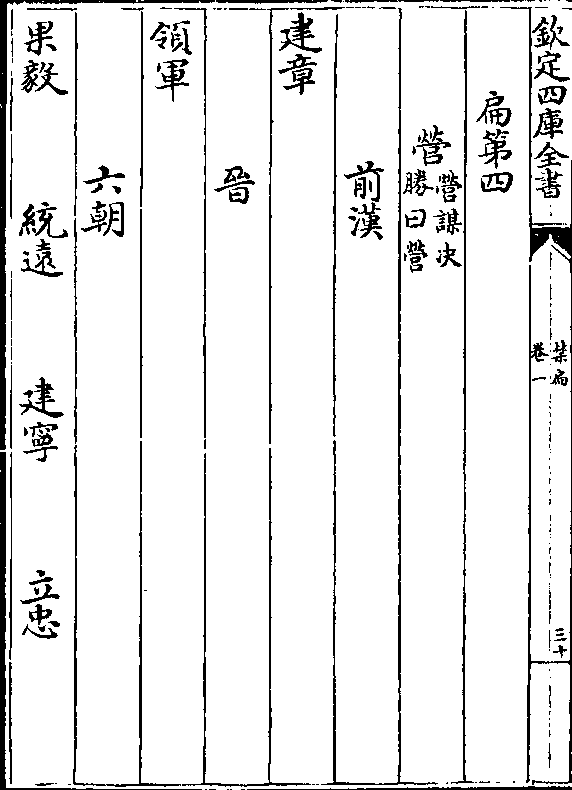 欽定四庫全書
禁扁
卷一
三十
扁第四
營營謀決
勝曰營
前漢
建章
晉
領軍
六朝
果毅 統遠 建寧 立忠